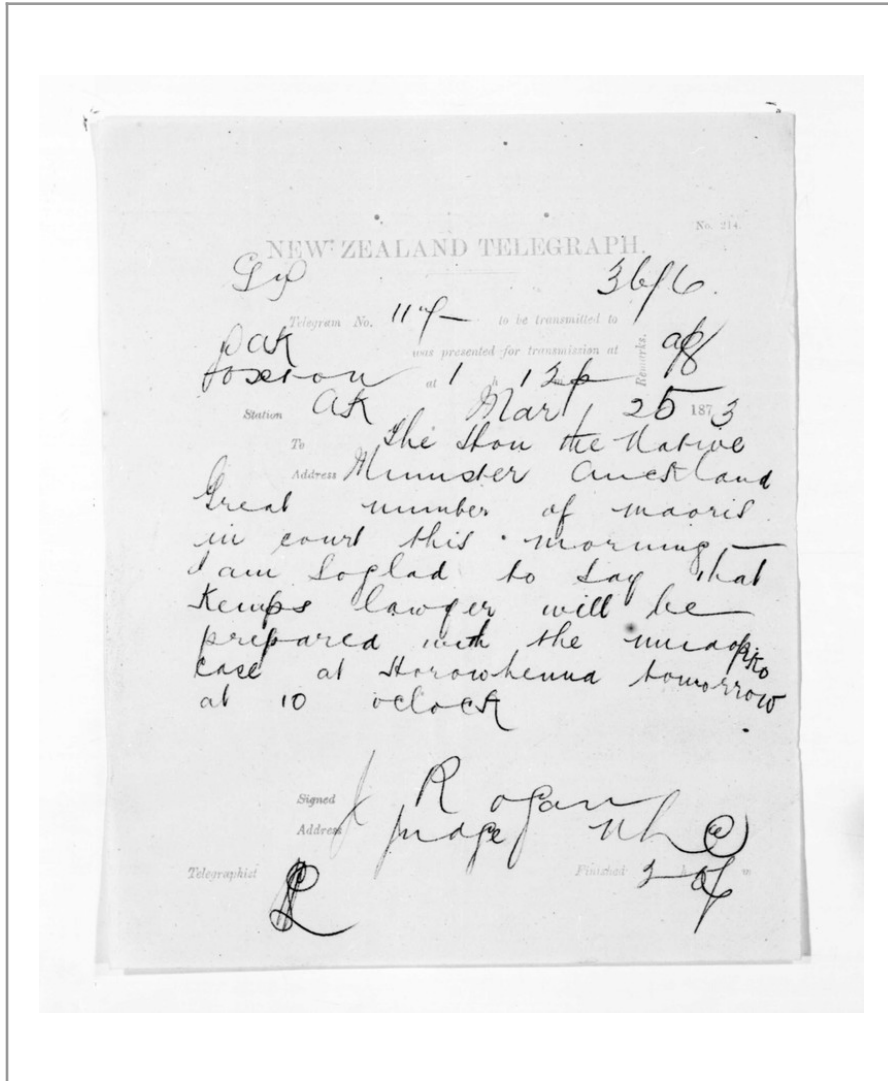 No. 214.
NEW ZEALAND TELEGRAPH.
36/6.
Telegram No. 117 to be transmitted to
ak was presented for transmission at Remarks.
Foxton at 1 h 12 p
Station AK Mar 25 1873
To The Hon the Native
Address Minister Auckland
Great number of maoris
in court this morning —
I am soglad to say that
Kemps lawyer will be
prepared with the muaopko
case at Horowhenua tomorrow
at 10 oclock
Signed J Rogan
Address Judge N L C
Telegraphist Finished 2